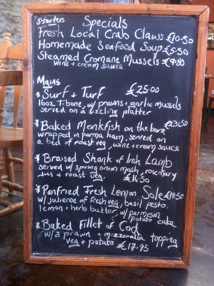 Starters Specials
Fresh Local Crab Claws €10.50
Homemade Seafood Soup €5.50
Steamed Cromane Mussels €9.80
wine + cream sauce
Mains
* Surf + Turf €25.00
16oz T.bone, w/ prawns + garlic mussels
served on a sizzling platter
* Baked Monkfish on the bone
wrapped in parma ham, served on
a bed of roast veg, wine + cream sauce
* Braised Shank of Irish Lamb
served w/ spring onion mash, rosemary
jus + roast veg. €16.50
* Panfried Fresh Lemon Sole
w/ julienne of fresh veg, basil pesto
lemon + herb butter, w/ parmesan
potato cake
* Baked Fillet of Cod
w/ 3 prawn + mozzarella topping
veg + potato €17.95